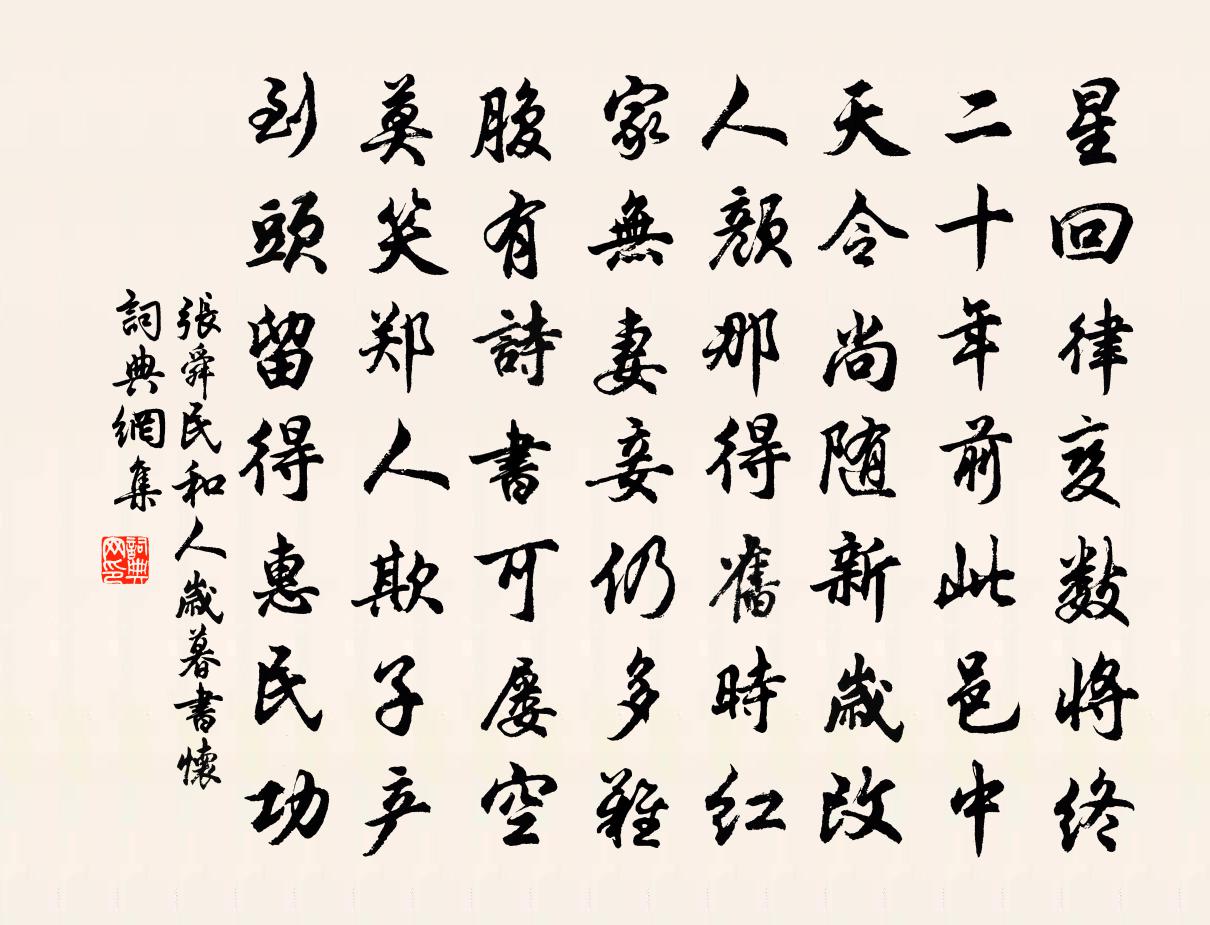 星回律变数将终
二十年前此邑中
天令尚随新歲改
人顏那得舊時红
家無妻妾仍多難
腹有詩書可屡空
莫笑郑人欺子产
到頭留得惠民功
張舜民和人歲暮書懷
詞典網集
詞典網印